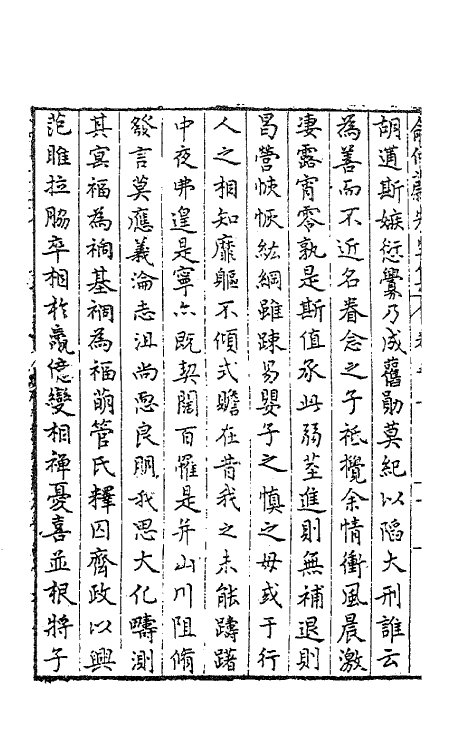 胡邁斯嫉愆釁乃成舊勛莫紀以陷大刑誰云
為善而不近名眷念之子祗攪余情衝風晨激
淒露宵零孰是斯值承此弱莖進則無補退則
昌營悚恢紘綱雖踈易嬰子之慎之毋或于行
人之相知靡軀不傾式瞻在昔我之未能躊躇
中夜弗遑是寧亦既契闊百罹是并山川阻脩
發言莫應義淪志沮尚慁良朋我思大化疇測
其冥福為禍基禍為福萌管氏釋囚齊政以興
范睢拉脇卒相於嬴億變相禪憂喜並根將子